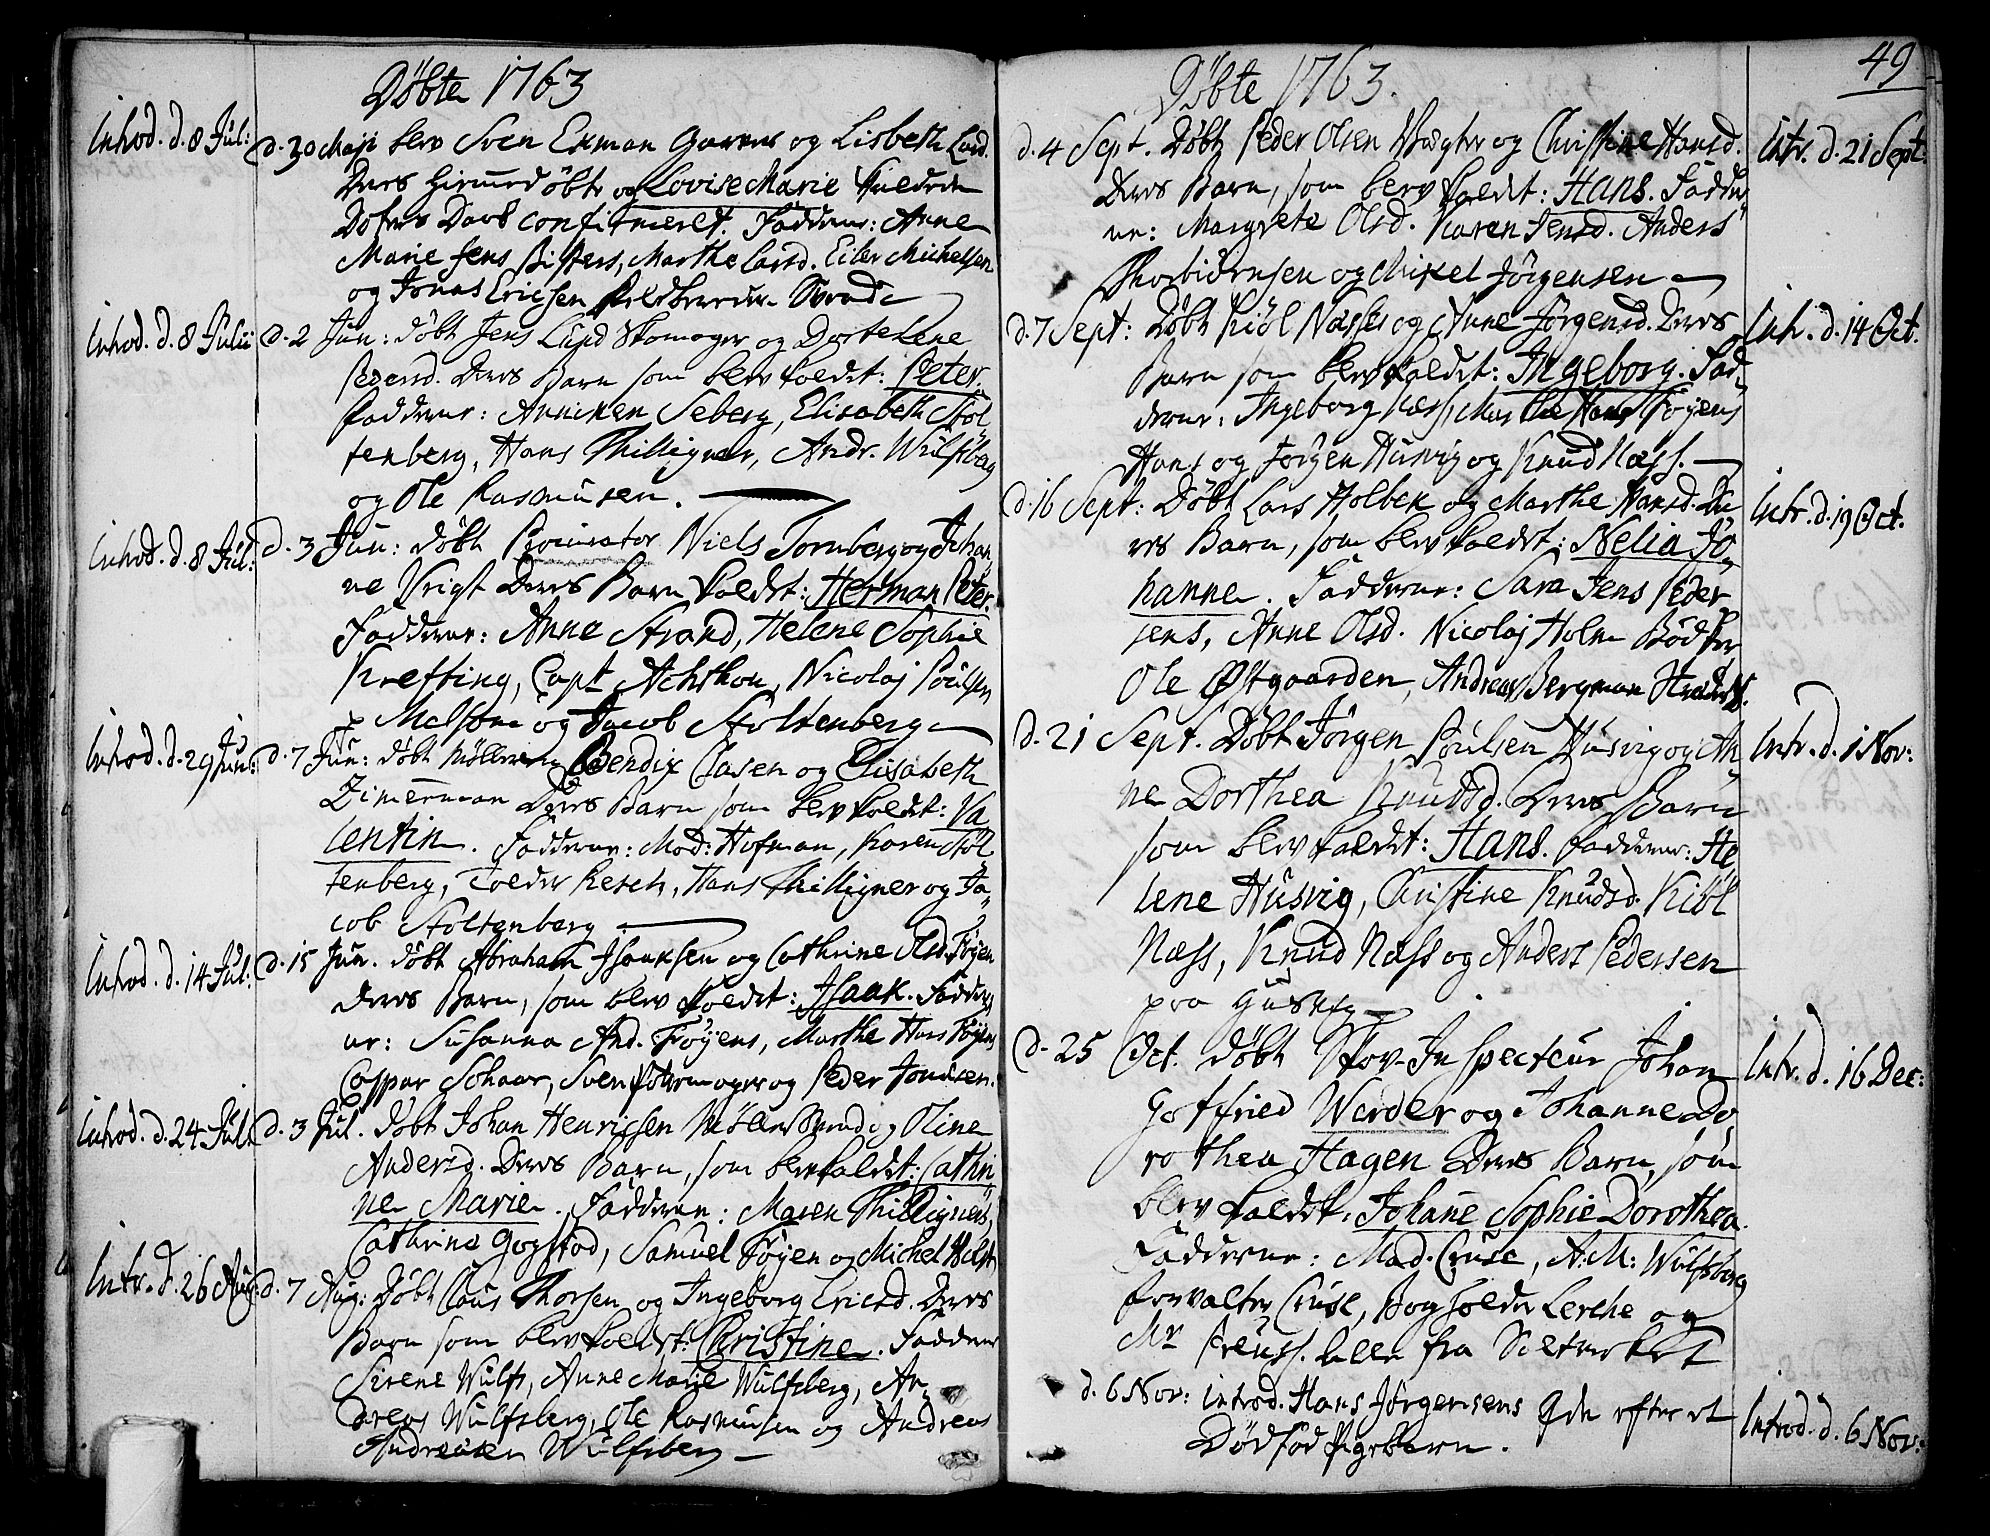 Døbte 1763
Introd. d. 8 Jul:
d. 30 Maji blev Sven Exman Garver og Lisbeth Larsd.
Deres hiemmedøbte og Lovise Marie kaldede
Dotters Daab confirmeret. Faddere: Anne
Marie Jens Bissens, Marthe Larsd. Eiler Michelsen
og Jonas Ericsen
Introd. d. 8 Julii
d. 2 Jun: døbt Jens Lund Skomager og Dorte Lene
Pedersd. Deres Barn som blev kaldet: Peter.
Fadderne: Anniken Seberg, Elisabeth Stol
tenberg, Hans Thilligner, Andr. Wulfsberg
og Ole Rasmusen.
Introd. d. 8 Jul:
d. 3 Jun: døbt Procurator Niels Tornberg og Johan
ne Vrigt Deres Barn kaldet: Herman Peter.
Fadderne: Anne Strand, Helene Sophie
Krefting, Capt. Achthon, Nicolaj Poulsen
Melsom og Jacob Stoltenberg
Introd. d. 29 Jun:
d. 7 Jun: døbt Bendix Clasen og Elisabeth
Zimerman Deres Barn som blev kaldet: Va
lentin. Fadderne: Mad: Hofman, Karen Stol
tenberg, Tolder Resch, Hans Thilligner og Ja
cob Stoltenberg
Introd. d. 14 Jul:
d. 15 Jun. døbt Abraham Isaaksen og Cathrine Olsd. Føyen
deres Barn, som blev kaldet: Isaak. Fadder
ne: Susanna And. Føyens, Marthe Hans Føyens
Caspar Schaar, Sven og Peder Jonasen.
Introd. d. 24 Jul:
d. 3 Jul. døbt Johan Henrissen Møller Svend og Oline
Andersd. Deres Barn, som blev kaldet: Cathri
ne Marie. Fadderne: Maren Thilligners,
Cathrine Gogstad, Samuel Føyen og Michel Holst
Intr. d. 26 Aug:
d. 7 Aug: Døbt Claus Thorsen og Ingeborg Ericsd. Deres
Barn som blev kaldet: Christine. Faddere
Sirene Wulfs, Anne Marie Wulfsberg, An
dreas Wulfsberg, Ole Rasmusen og Andreas
Andreasen Wulfsberg
49
Døbte 1763.
d. 4 Sept. Døbt Peder Olsen Vægter og Christine Hansd.
Intr. d. 21 Sept.
Deres Barn, som blev kaldet: Hans. Fadder
ne: Margrete Olsd. Karen Jensd. Anders
Thorbiørnsen og Mikel Jörgensen
d. 7 Sept: Døbt Kiøl Næss og Anne Jörgensd. Deres
Intr. d. 14 Oct.
Barn som blev kaldet: Ingeborg. Fad
derne: Ingeborg Næss, Marthe Hans Föyens
Hans og Jörgen Husvig og Knud Næss.
d. 16 Sept: Døbt Lars Holbek og Marthe Hansd. De
Intr. d. 19 Oct.
res Barn, som blev kaldet: Nelia Jo
hanne. Fadderne: Sara Jens Peder
sens, Anne Olsd. Nicolaj Holm Bødker
Ole Østgaarden, Andreas Bergman
d. 21 Sept. Døbt Jörgen Poulsen Husvig og An
Intr. d. 1 Nov:
ne Dorthea Knudsd. Deres Barn
som blev kaldet: Hans. Fadderne: He
lene Husvig, Christine Knudsd. Kiöl
Næss, Knud Næss og Anders Pedersen
d. 25 Oct. døbt Skov-Inspecteur Johan
Intr. d. 16 Dec:
Gottfried Werder og Johanne Do
rothea Hagen Deres Barn, som
blev kaldet. Johanne Sophie Dorothea.
Fadderne: Mad. Cruse, A.M: Wulfsberg
forvalter Cruse, Bogholder Lerche og
Mr Preuss. alle fra Saltverket
d. 6 Nov: introd. Hans Jørgensens efter et
Introd. d. 6 Nov:
Dødfød Pigebarn.